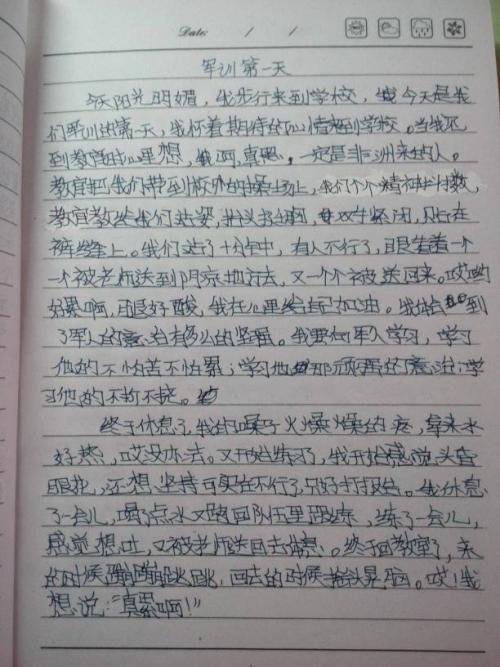 Date: / /
军训第一天
今天阳光明媚，我步行来到学校，今天是我
们军训的第一天，我怀着期待的心情来到学校。当我见
到教官时心里想，我啊，真黑，一定是非洲来的人。
教官把我们带到校外的操场上，我们个个精神抖擞，
教官教给我们站姿，抬头挺胸，双手紧闭，贴在
裤缝上。我们站了十分中，有人不行了，眼看着一个
一个被老师送到阴凉地方去，又一个个被送回来。哎哟
好累啊，腿好酸，我在心里给自己加油。我体会到
了军人的意治有多么的坚强。我要向军人学习，学习
他的不怕苦不怕累；学习他那顽强的意治；学
习他的不折不挠。
终于休息了，我的嗓子火燥燥的疼，拿来水
好热，哎没办法。又开始练习了，我开始感觉头昏
眼花，还想坚持可实在不行了，只好打报告。我休息
了一会儿，喝了点水又跑回队伍里跟练，练了一会儿，
感觉想吐，又被老师送回去休息。终于回教室了，来
的时候蹦蹦跳跳，回去的时候抬头晃脑。哎！我
想说：“真累啊！”